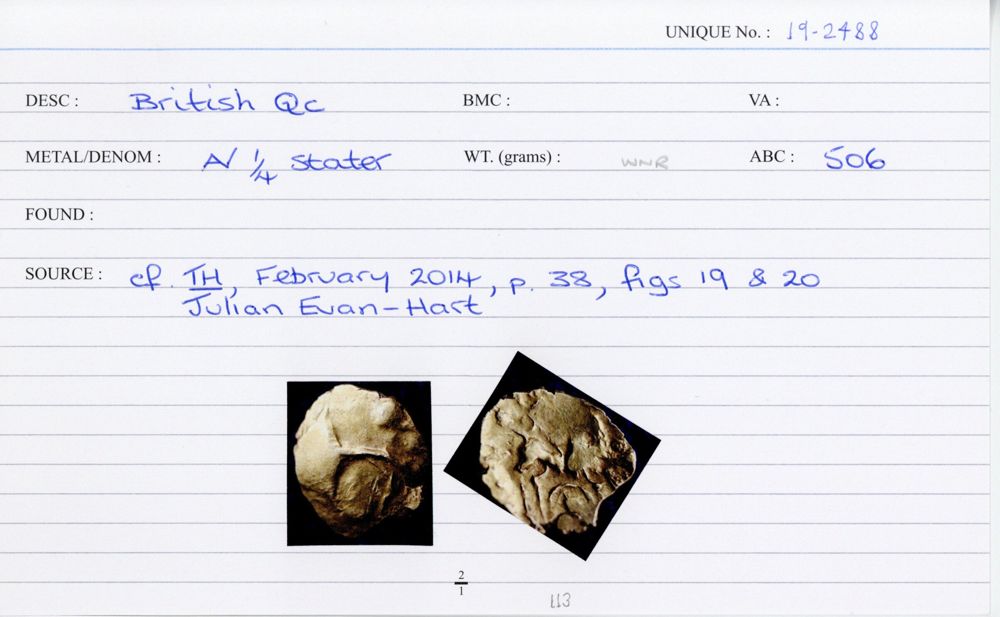 UNIQUE No. : 19-2488
DESC : British Qc BMC : VA :
METAL/DENOM : A/ 1/4 stater WT. (grams) : WNR ABC : 506
FOUND :
SOURCE : cf. TH, February 2014, p. 38, figs 19 & 20
Julian Evan-Hart
2/1
113